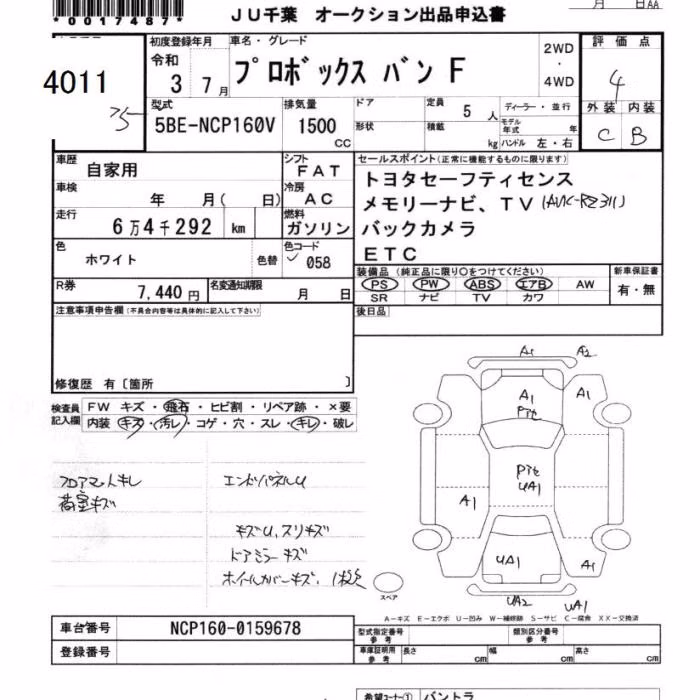 *00017487*
JU千葉 オークション出品申込書
月 日 AA
4011
35
初度登録年月
令和
3年 7月
車名・グレード
プロボックス バン F
2WD
・
4WD
評価点
4
外装 内装
C B
型式
5BE-NCP160V
排気量
1500
CC
ドア
形状
定員 5 人
積載 kg
ディーラー・並行
モデル年式 年
ハンドル 左・右
車歴 自家用
シフト FAT
車検 年 月( 日)
冷房 AC
走行 6万4千292 km
燃料 ガソリン
色 ホワイト 色替
色コード 058
R券 7,440円
名変通知期限 月 日
セールスポイント(正常に機能するものに限ります)
トヨタセーフティセンス
メモリーナビ、TV (AVIC-RZ311)
バックカメラ
ETC
装備品(純正品に限り○をつけてください)
PS PW ABS エアB AW
SR ナビ TV カワ
新車保証書
有・無
後日品
注意事項申告欄(不具合内容等は具体的に記入して下さい)
修復歴 有〔箇所 〕
検査員記入欄
FW キズ・飛石・ヒビ割・リペア跡・×要
内装 キズ・汚レ・コゲ・穴・スレ・キレ・破レ
フロアマットキレ
荷室キズ
エンドパネルU
キズU、スリキズ
ドアミラーキズ
ホイールカバーキズ、
A1 A2
A1
Pit
A1
Pit
UA1
A1
UA1
A1
UA2
UA1
スペア
A-キズ E-エクボ U-凹み W-補修跡 S-サビ C-腐食 XX-交換済
車台番号 NCP160-0159678
登録番号
型式指定番号 参考
類別区分番号 参考
車庫証明用 参考 長さ cm 幅 cm 高さ cm
希望コーナー① バントラ